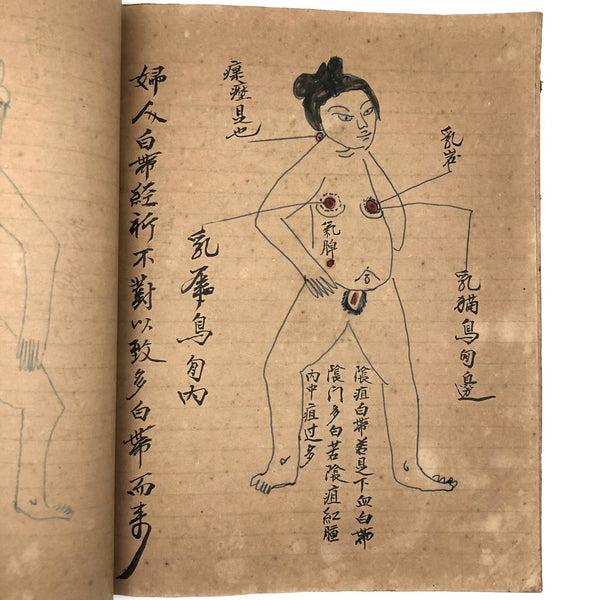 乳岩
瘰疬是也
乳猫鳥旬邊
氣脾
陰疽白帶若是下血白帶
陰门多白若陰疽紅腫
内中疽过多
鳥旬内
婦人白帶經祈不對以致多白帶而来